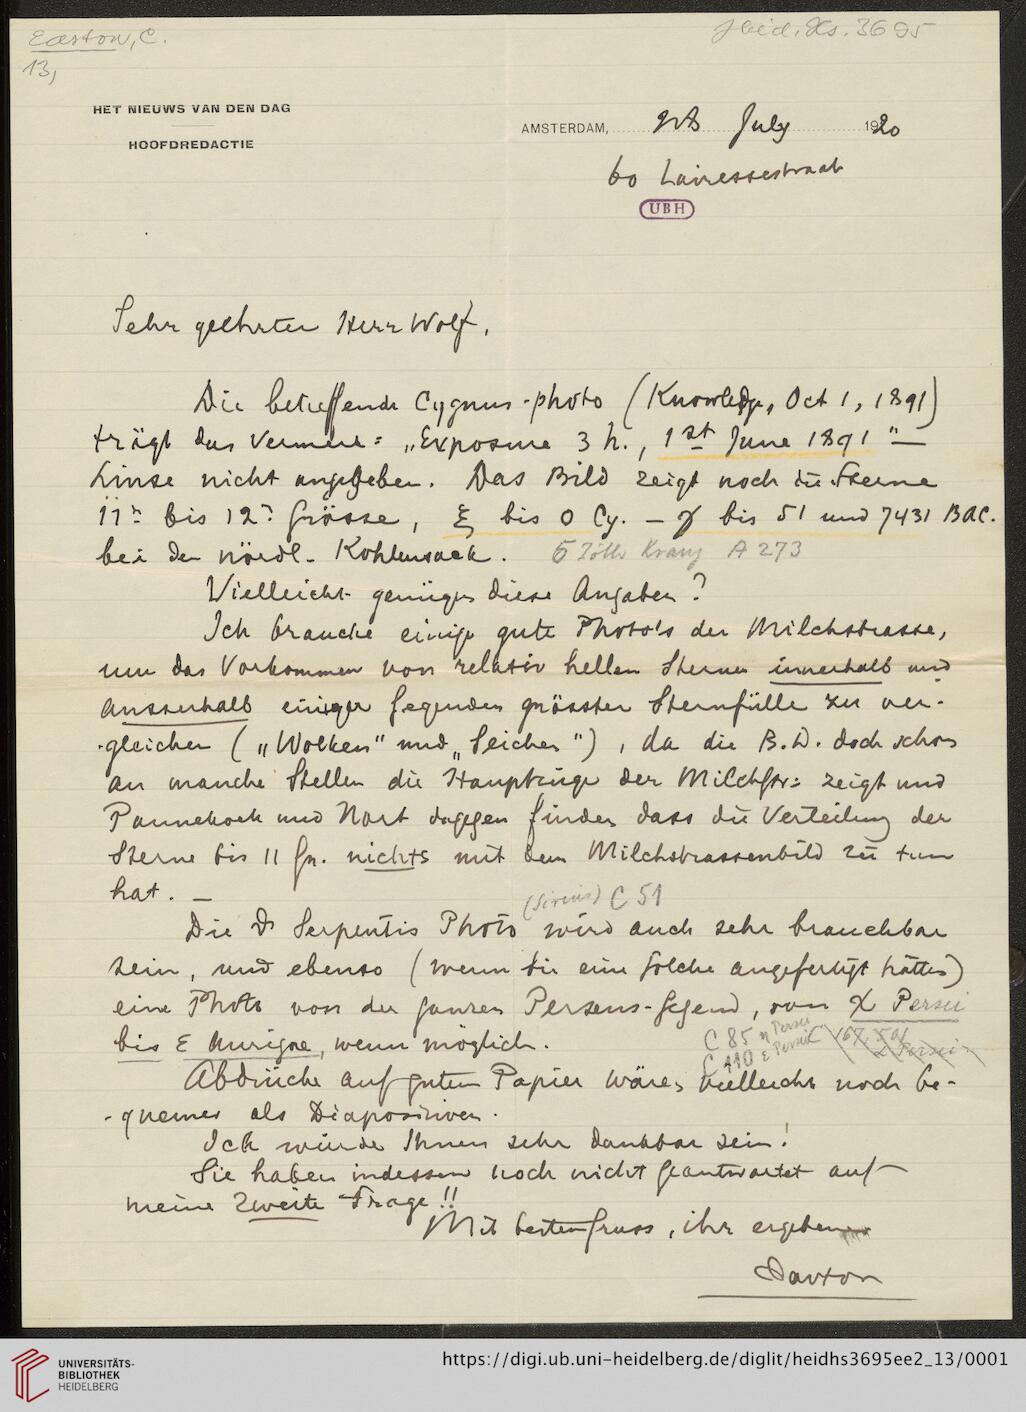 Easton, C.
Heid. Hs. 3695
13,
HET NIEUWS VAN DEN DAG
HOOFDREDACTIE
AMSTERDAM, July 1920
60 Lairessestraat
UBH
Sehr geehrter Herr Wolf,
Die betreffende Cygnus-photo (Knowledge, Oct 1, 1891)
trägt das Vermerk: „Exposure 3 h., 1st June 1891" —
Linse nicht angegeben. Das Bild zeigt noch die Sterne
11r bis 12r Grösse, ξ bis o Cy. — γ bis 51 und 7431 BAC.
bei der nördl. Kohlensack. A 273
Vielleicht genügen diese Angaben?
Ich brauche einige gute Photo's der Milchstrasse,
um das Vorkommen von relativ hellen Sternen innerhalb und
ausserhalb einiger Gegenden grösster Sternfülle zu ver-
-gleichen („Wolken" und „Teichen"), da die B.D. doch schon
an manche Stellen die Hauptzüge der Milchstr: zeigt und
Pannekoek und Nort dagegen finden dass die Verteilung der
Sterne bis 11 Gr. nichts mit dem Milchstrassenbild zu tun
hat. —
(Sirius) C 51
Die Serpentis Photo wird auch sehr brauchbar
sein, und ebenso (wenn Sie eine solche angefertigt hätten)
eine Photo von der ganzen Perseus-Gegend, von χ Persei
bis ε Aurigae, wenn möglich.
C 85 η Persei
C 110 ε Persei
Abdrücke auf gutem Papier wären vielleicht noch be-
-quemer als Diapositiven.
Ich würde Ihnen sehr dankbar sein!
Sie haben indessen noch nicht geantwortet auf
meine zweite Frage!!
Mit besten Gruss, ihr ergeben
Easton
UNIVERSITÄTS-
BIBLIOTHEK
HEIDELBERG
https://digi.ub.uni-heidelberg.de/diglit/heidhs3695ee2_13/0001